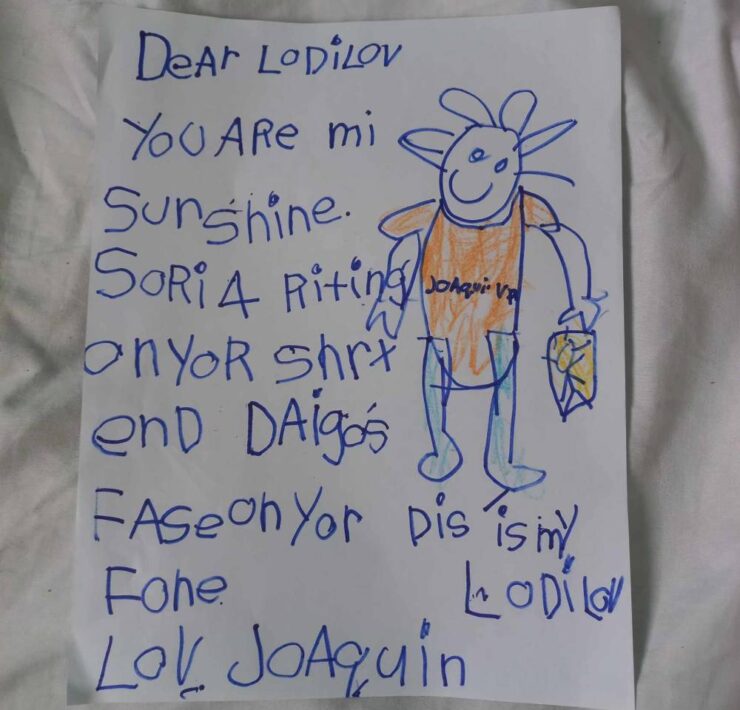 DeAr LODiLOV
YOU ARe mi
Sunshine.
SORi 4 Riting
on yoR shrt
enD DAigos
FASe on Yor
Fone
LOV JOAquin
JOAqui
Dis is my
LODilov